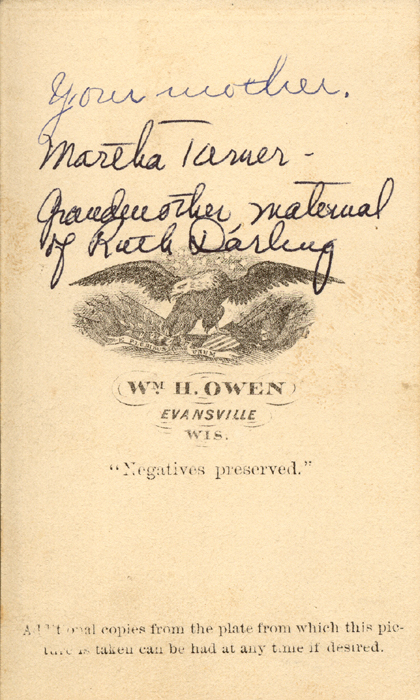 Your mother.
Martha Turner -
Grandmother maternal
of Ruth Darling
E PLURIBUS UNUM
WM H. OWEN
EVANSVILLE
WIS.
"Negatives preserved."
Additional copies from the plate from which this pic-
ture is taken can be had at any time if desired.